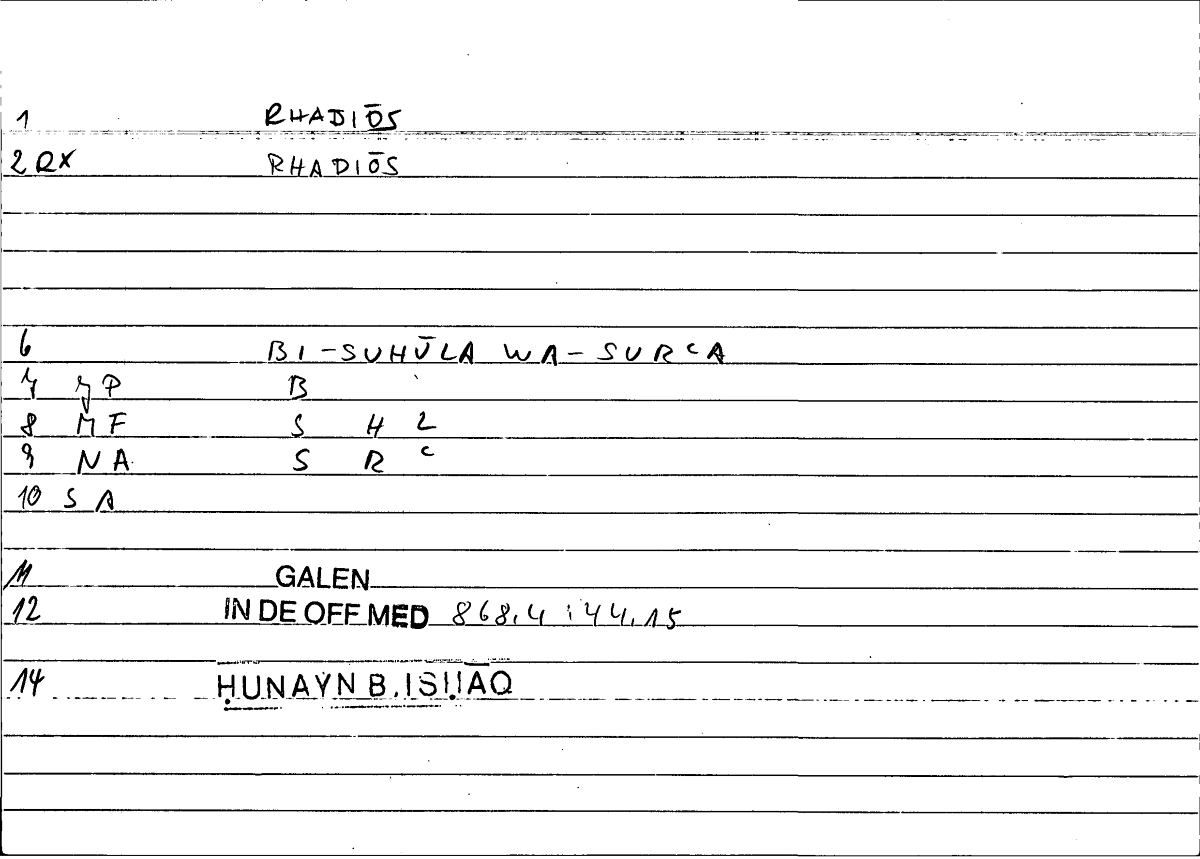 1 RHADIŌS
2 RX RHADIŌS
6 BI-SUHŪLA WA-SURʿA
7 JP B
8 MF S H L
9 NA S R ʿ
10 S A
11 GALEN
12 IN DE OFF MED 868,4 : 44,15
14 ḤUNAYN B. ISḤĀQ